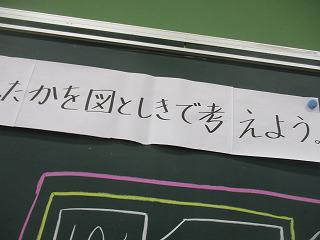 たかを図としきで考えよう。